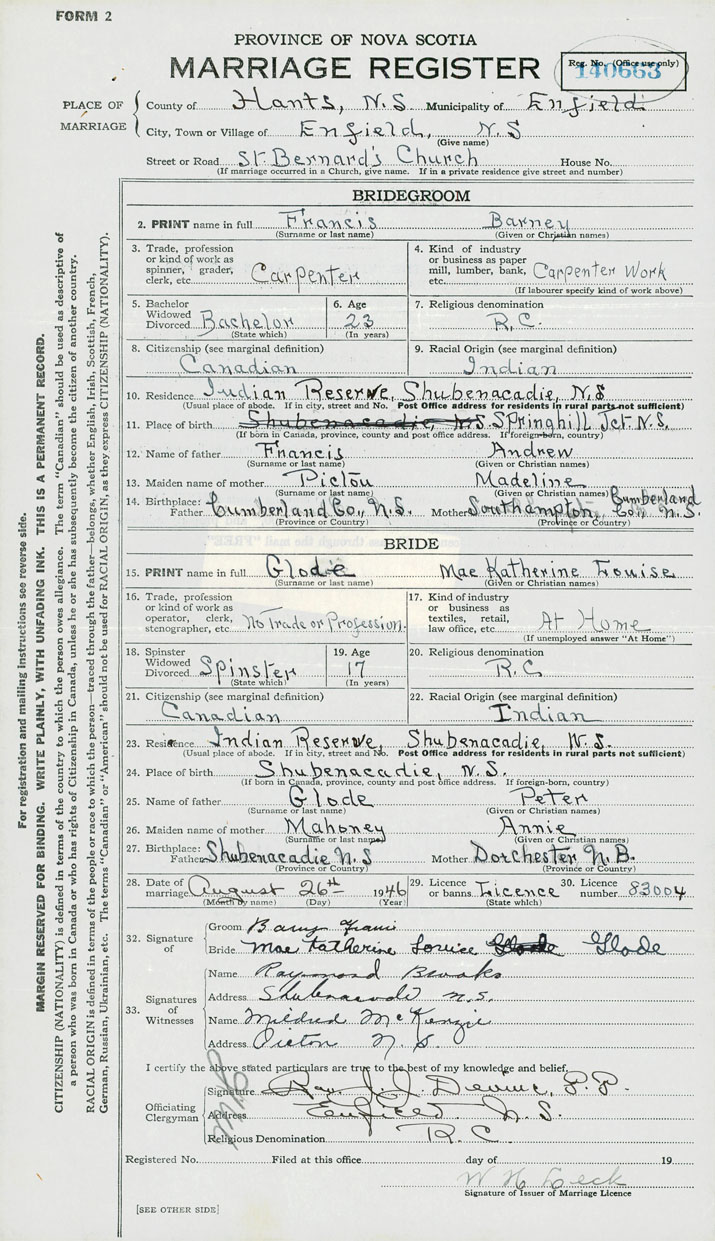 FORM 2
PROVINCE OF NOVA SCOTIA
MARRIAGE REGISTER
Reg. No. (Office use only)
140663
PLACE OF MARRIAGE
County of Hants, N.S. Municipality of Enfield
City, Town or Village of Enfield, N.S
(Give name)
Street or Road St. Bernard's Church House No.
(If marriage occurred in a Church, give name. If in a private residence give street and number)
BRIDEGROOM
2. PRINT name in full Francis Barney
(Surname or last name) (Given or Christian names)
3. Trade, profession or kind of work as spinner, grader, clerk, etc. Carpenter
4. Kind of industry or business as paper mill, lumber, bank, etc. Carpenter Work
(If labourer specify kind of work above)
5. Bachelor Widowed Divorced Bachelor
(State which)
6. Age 23
(In years)
7. Religious denomination R.C.
8. Citizenship (see marginal definition) Canadian
9. Racial Origin (see marginal definition) Indian
10. Residence Indian Reserve, Shubenacadie, N.S
(Usual place of abode. If in city, street and No. Post Office address for residents in rural parts not sufficient)
11. Place of birth Shubenacadie, N.S. Springhill Jct. N.S.
(If born in Canada, province, county and post office address. If foreign-born, country)
12. Name of father Francis Andrew
(Surname or last name) (Given or Christian names)
13. Maiden name of mother Pictou Madeline
(Surname or last name) (Given or Christian names)
14. Birthplace: Father Cumberland Co., N.S. Mother Southampton, Cumberland Co., N.S.
(Province or Country) (Province or Country)
BRIDE
15. PRINT name in full Glode Mae Katherine Louise
(Surname or last name) (Given or Christian names)
16. Trade, profession or kind of work as operator, clerk, stenographer, etc. No Trade or Profession.
17. Kind of industry or business as textiles, retail, law office, etc. At Home
(If unemployed answer "At Home")
18. Spinster Widowed Divorced Spinster
(State which)
19. Age 17
(In years)
20. Religious denomination R.C
21. Citizenship (see marginal definition) Canadian
22. Racial Origin (see marginal definition) Indian
23. Residence Indian Reserve, Shubenacadie, N.S.
(Usual place of abode. If in city, street and No. Post Office address for residents in rural parts not sufficient)
24. Place of birth Shubenacadie, N.S.
(If born in Canada, province, county and post office address. If foreign-born, country)
25. Name of father Glode Peter
(Surname or last name) (Given or Christian names)
26. Maiden name of mother Mahoney Annie
(Surname or last name) (Given or Christian names)
27. Birthplace: Father Shubenacadie N.S Mother Dorchester N.B.
(Province or Country) (Province or Country)
28. Date of marriage August 26th 1946
(Month by name) (Day) (Year)
29. Licence or banns Licence
(State which)
30. Licence number 83004
32. Signature of
Groom
Bride Mae Katherine Louise Glode Glode
33. Signatures of Witnesses
Name Raymond Brooks
Address Shubenacadie N.S.
Name Mildred McKenzie
Address Pictou N.S.
I certify the above stated particulars are true to the best of my knowledge and belief.
Officiating Clergyman
Signature Rev. J. J. Devine, P.P.
Address Enfield N.S.
Religious Denomination R.C.
Registered No. Filed at this office day of 19
Signature of Issuer of Marriage Licence
[SEE OTHER SIDE]
For registration and mailing instructions see reverse side.
MARGIN RESERVED FOR BINDING. WRITE PLAINLY, WITH UNFADING INK. THIS IS A PERMANENT RECORD.
CITIZENSHIP (NATIONALITY) is defined in terms of the country to which the person owes allegiance. The term "Canadian" should be used as descriptive of
a person who was born in Canada or who has rights of Citizenship in Canada, unless he or she has subsequently become the citizen of another country.
RACIAL ORIGIN is defined in terms of the people or race to which the person—traced through the father—belongs, whether English, Irish, Scottish, French,
German, Russian, Ukrainian, etc. The terms "Canadian" or "American" should not be used for RACIAL ORIGIN, as they express CITIZENSHIP (NATIONALITY).